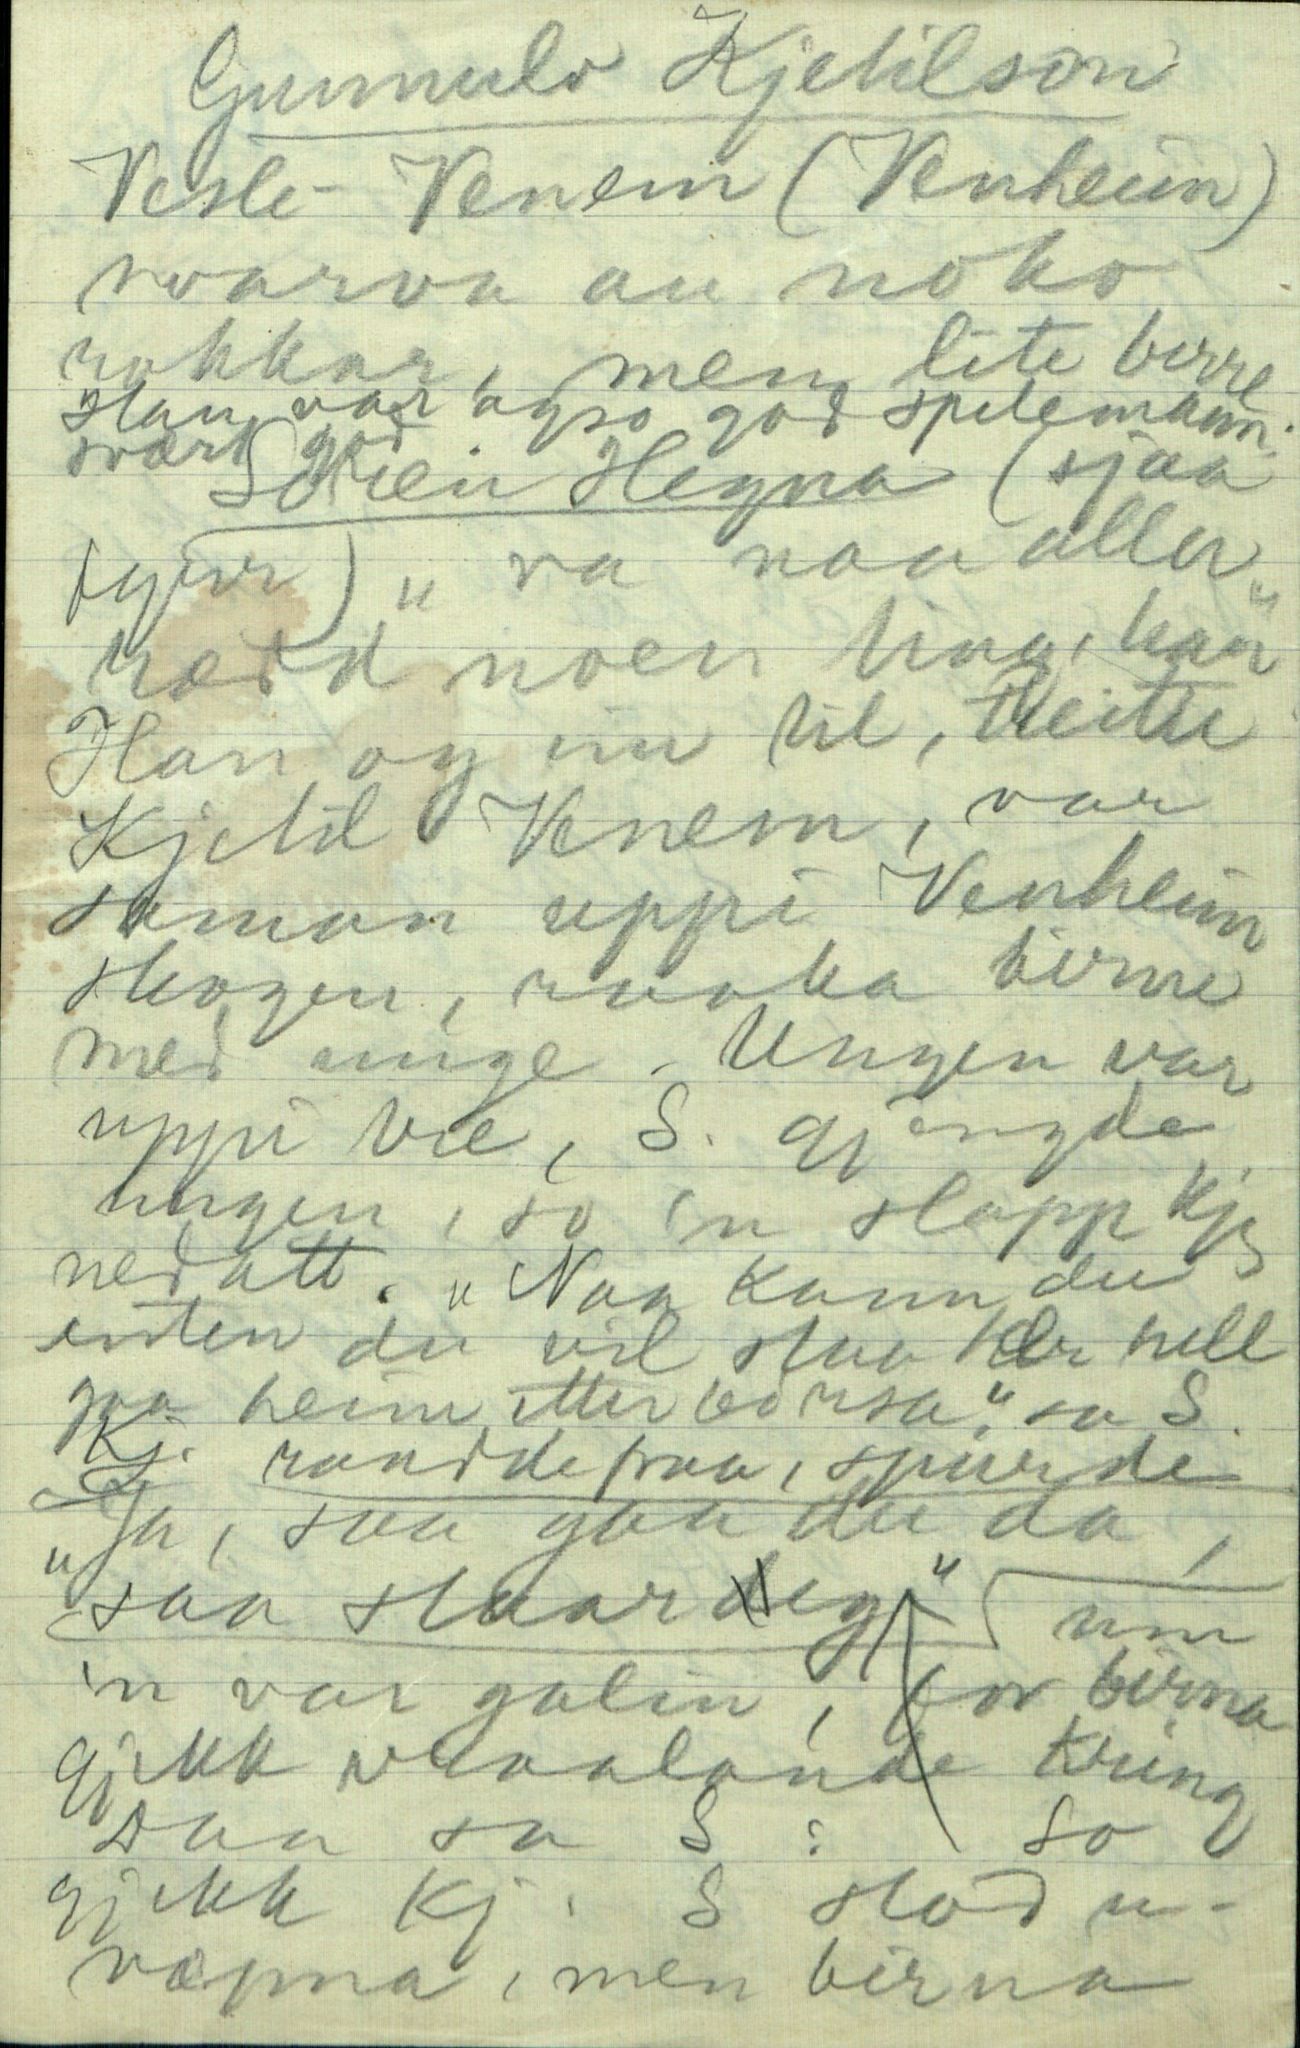 Gunnulv Kjetilson
Vesle-Venem (Venheim)
svarva au noko
rokkar, men lite berre
Han var ogso god spelemann.
svært god
Svein Hegna (sjaa
fyrr) "va naa aller
rædd noen ting, han"
Han og ein til, Veitle
Kjetil Venem, var
saman uppi Venheim
skogen, raaka birne
med unge. Ungen var
uppi tre, S. gjengde
ungen, so 'n slapp Kj.
nedatt. "Naa kann du
enten du vil staa her hell
gaa heim etter børsa", sa S.
Kj. raadde paa, spurde
"Ja, saa gaa du da,
"saa staar eg" um
'n var galin, for birna
gjekk vraalande kring
Daa sa S: So
gjekk Kj. S stod u-
væpna, men birna